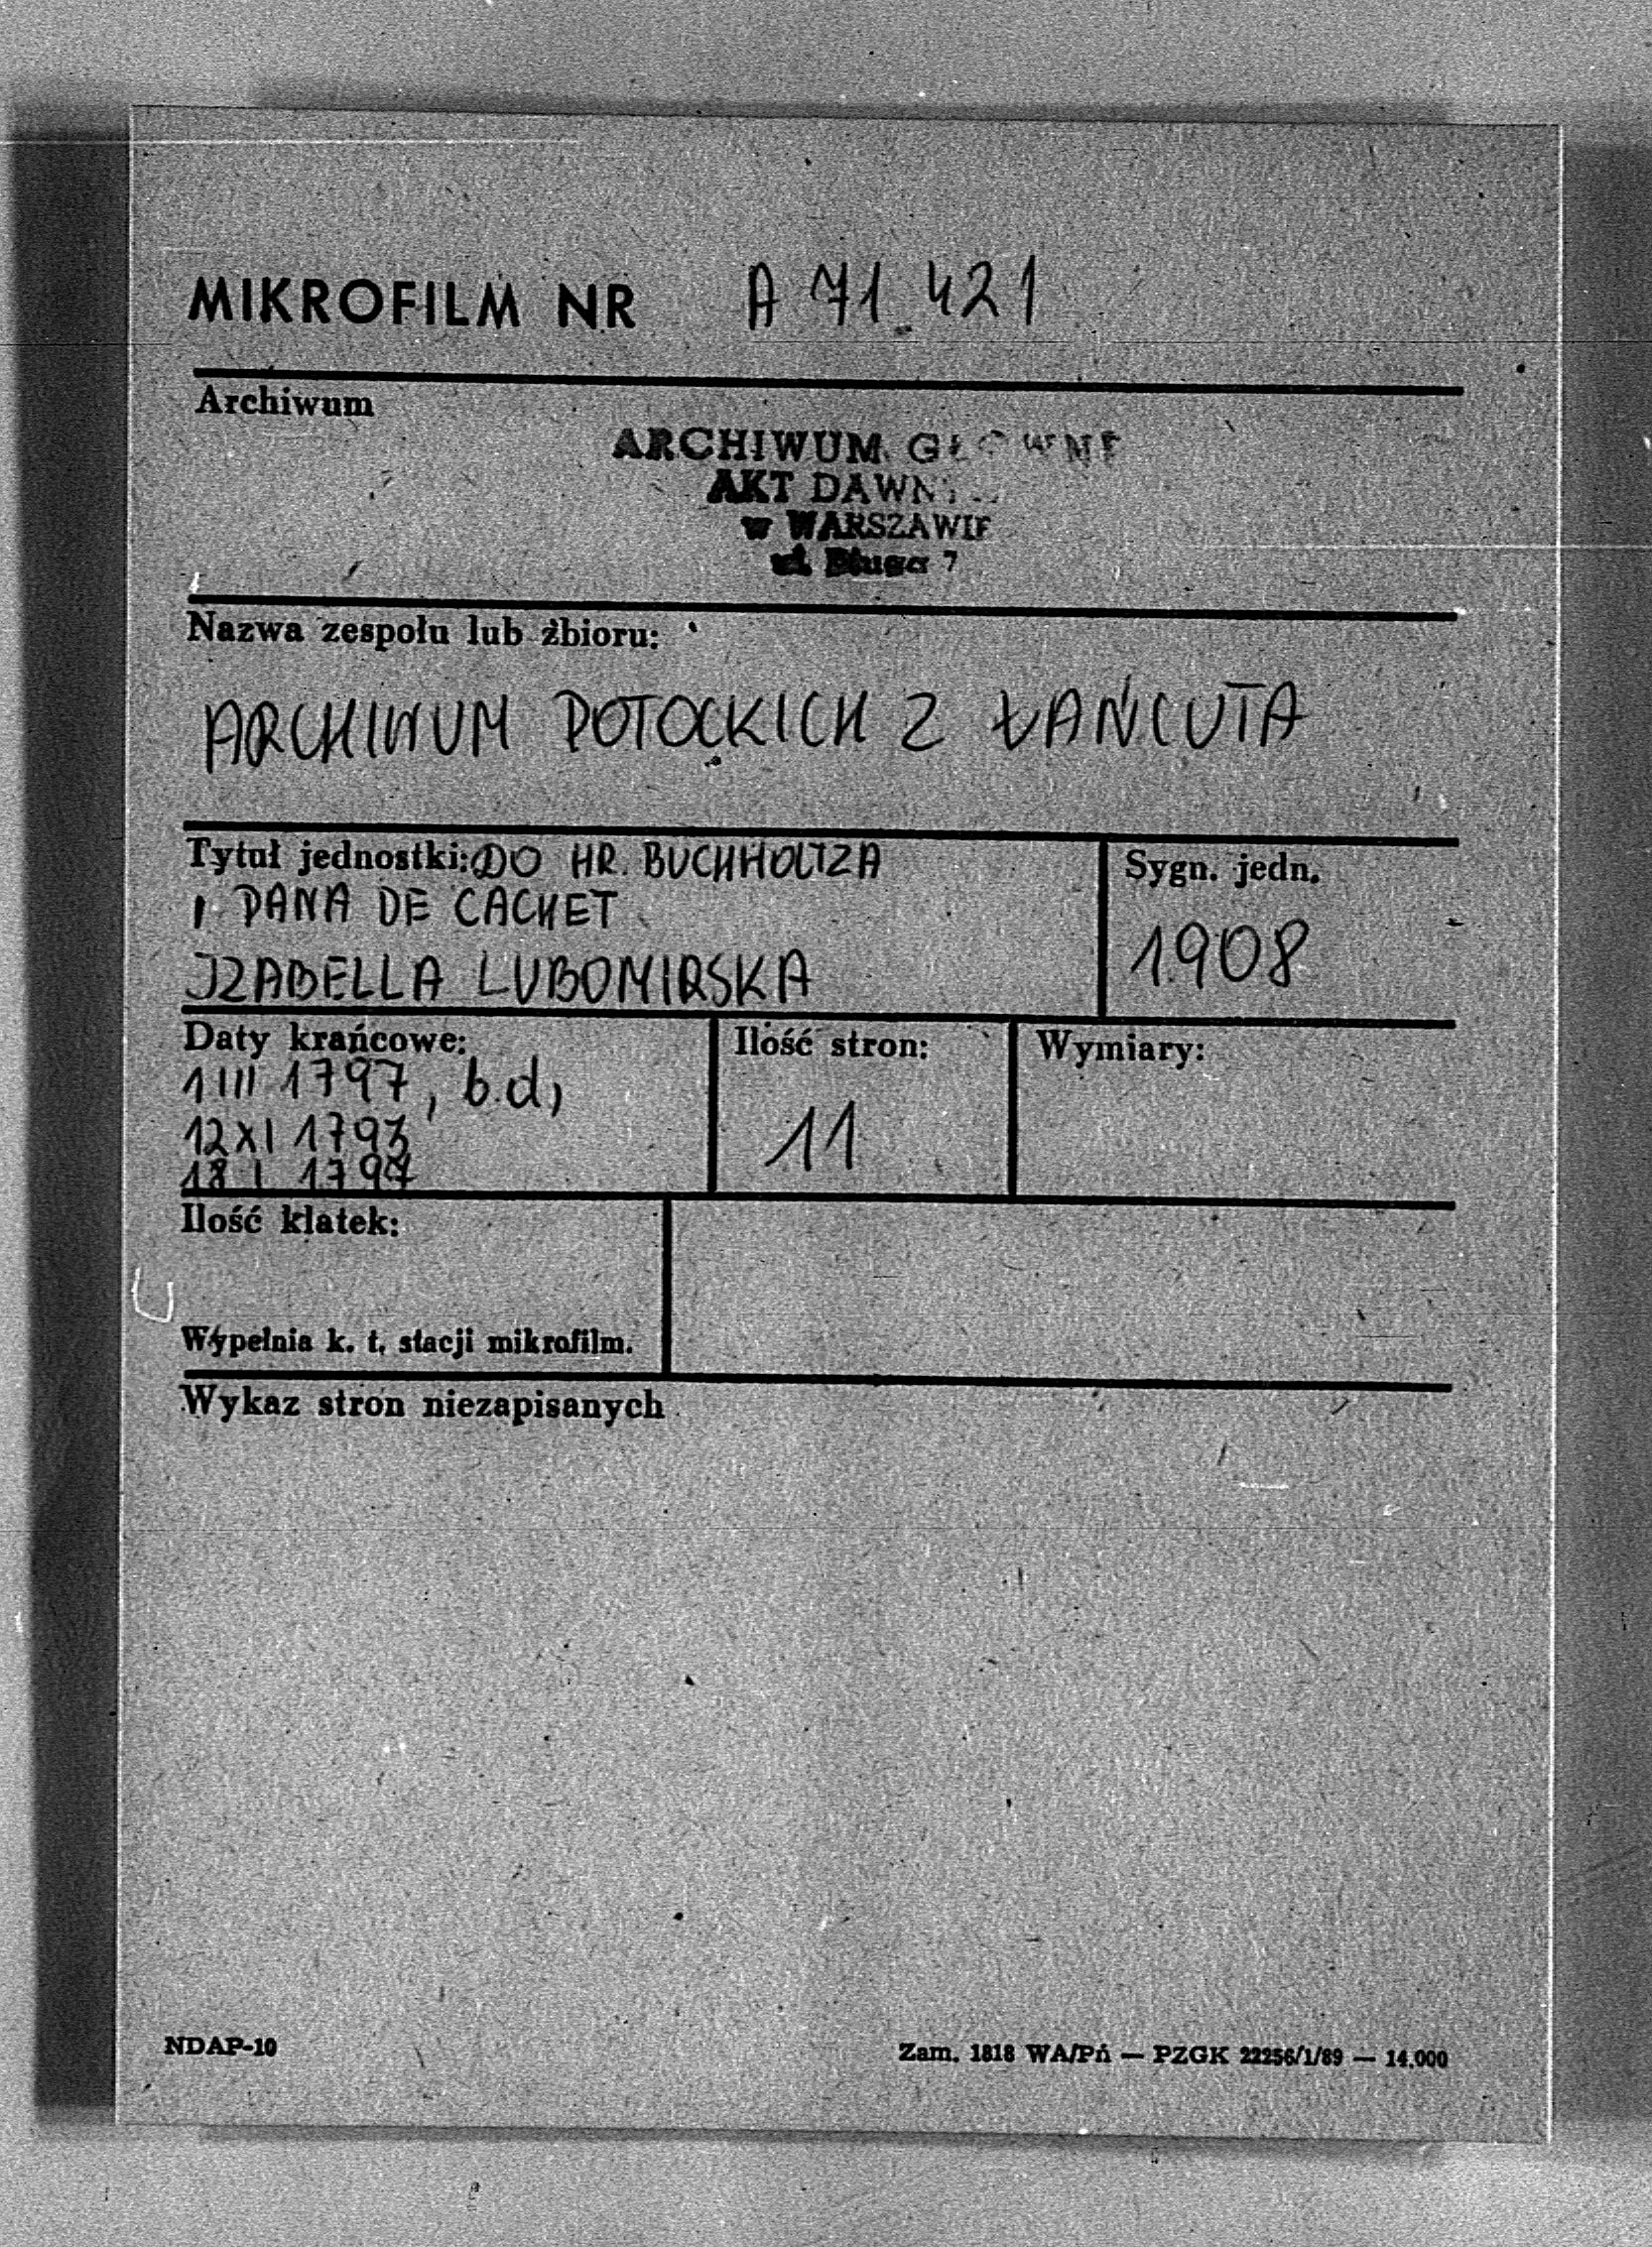 MIKROFILM NR A 71421
Archiwum
ARCHIWUM GŁÓWNE
AKT DAWN
w WARSZAWIE
ul. Długa 7
Nazwa zespołu lub zbioru:
ARCHIWUM POTOCKICH Z ŁAŃCUTA
Tytuł jednostki: DO HR. BUCHHOLTZA
I PANA DE CACHET
IZABELLA LUBOMIRSKA
Sygn. jedn.
1908
Daty krańcowe:
1 III 1797, b.d,
12 XI 1793
18 I 1794
Ilość stron:
11
Wymiary:
Ilość klatek:
Wypełnia k. t. stacji mikrofilm.
Wykaz stron niezapisanych
NDAP-10
Zam. 1818 WA/Pń — PZGK 22256/1/89 — 14.000